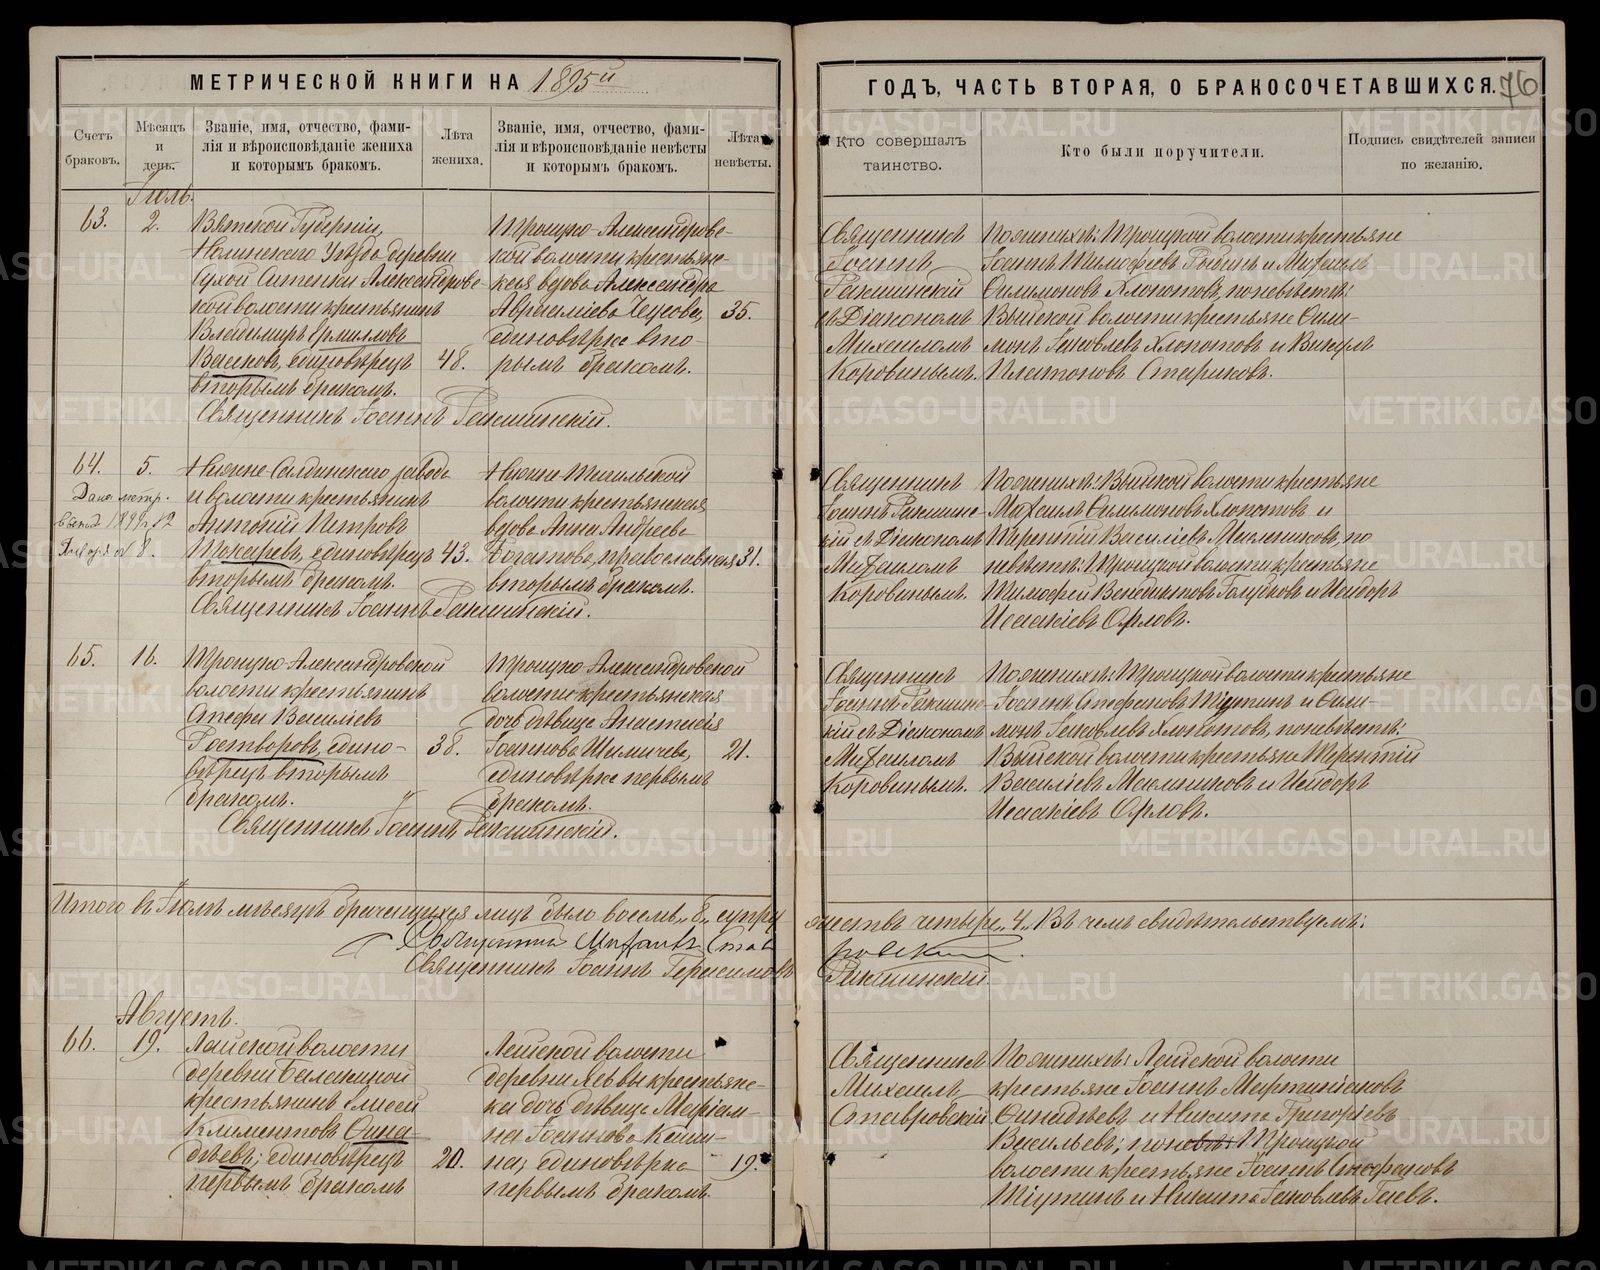 МЕТРИЧЕСКОЙ КНИГИ НА 1895й
ГОДЪ, ЧАСТЬ ВТОРАЯ, О БРАКОСОЧЕТАВШИХСЯ. 76
Счетъ браковъ.
Мѣсяцъ и день.
Званіе, имя, отчество, фами-
лія и вѣроисповѣданіе жениха
и которымъ бракомъ.
Лѣта жениха.
Званіе, имя, отчество, фами-
лія и вѣроисповѣданіе невѣсты
и которымъ бракомъ.
Лѣта невѣсты.
Кто совершалъ
таинство.
Кто были поручители.
Подпись свидѣтелей записи
по желанію.
Іюль.
63.
2.
Вятской Губерніи,
Нолинскаго Уѣзда деревни
Александров-
ской волости крестьянинъ
Владимиръ Ермиловъ
единовѣрецъ
вторымъ бракомъ.
48.
Троицко-Александровс-
кой волости крестьянс-
кая вдова Александра
единовѣрка вто-
рымъ бракомъ.
35.
Священникъ Іоаннъ
Священникъ
Іоаннъ
съ Діакономъ
Михаиломъ
Коровинымъ.
По женихѣ: Троицкой волости крестьяне
Іоаннъ Тимофеевъ и Михаилъ
Филимоновъ Хлопотовъ, по невѣстѣ:
Выйской волости крестьяне Фили-
монъ Іаковлевъ Хлопотовъ и Викулъ
Платоновъ Стариковъ.
64.
5.
Дана метр.
8.
Нижне-Салдинскаго завода
и волости крестьянинъ
Антоній Петровъ
Токаревъ, единовѣрецъ
вторымъ бракомъ.
43.
Нижне-Тагильской
волости крестьянская
вдова Анна Андреева
Богатова, православная
вторымъ бракомъ.
31.
Священникъ Іоаннъ
Священникъ
Іоаннъ
кій съ Діакономъ
Михаиломъ
Коровинымъ.
По женихѣ: Выйской волости крестьяне
Михаилъ Филимоновъ Хлопотовъ и
Терентій Василіевъ Масленниковъ, по
невѣстѣ: Троицкой волости крестьяне
Тимофей Венедиктовъ Голубковъ и Исидоръ
Исаакіевъ Орловъ.
65.
16.
Троицко-Александровской
волости крестьянинъ
Василіевъ
Растворовъ, едино-
вѣрецъ вторымъ
бракомъ.
38.
Троицко-Александровской
волости крестьянская
дочь дѣвица Анастасія
Іоаннова
единовѣрка первымъ
бракомъ.
21.
Священникъ Іоаннъ
Священникъ
Іоаннъ
кій съ Діакономъ
Михаиломъ
Коровинымъ.
По женихѣ: Троицкой волости крестьяне
Іоаннъ Стефановъ Тіунинъ и Фили-
монъ Іаковлевъ Хлопотовъ, по невѣстѣ:
Выйской волости крестьяне Терентій
Василіевъ Масленниковъ и Исидоръ
Исаакіевъ Орловъ.
Итого въ Іюлѣ мѣсяцѣ брачащихся лицъ было восемь „8„ супру
жествъ четыре „4„ Въ чемъ свидѣтельствуемъ:
Священникъ Михаилъ Став
ровскій.
Священникъ Іоаннъ Герасимовъ
Августъ.
66.
19.
Лайской волости
деревни Балакиной
крестьянинъ Елисей
Климентовъ Фина-
дѣевъ; единовѣрецъ
первымъ бракомъ
20.
Лайской волости
деревни Лаввы крестьянс-
ка дочь дѣвица Маріам-
на Іоаннова
единовѣрка
первымъ бракомъ.
19.
Священникъ
Михаилъ
Ставровскій
По женихѣ: Лайской волости
крестьяне Іоаннъ Мартиніановъ
Финадѣевъ и Никита Григоріевъ
Васильевъ; по невѣ: Троицкой
волости крестьяне Іоаннъ Стефановъ
Тіунинъ и Никита Іаковлевъ Гаевъ.
METRIKI.GASO-URAL.RU